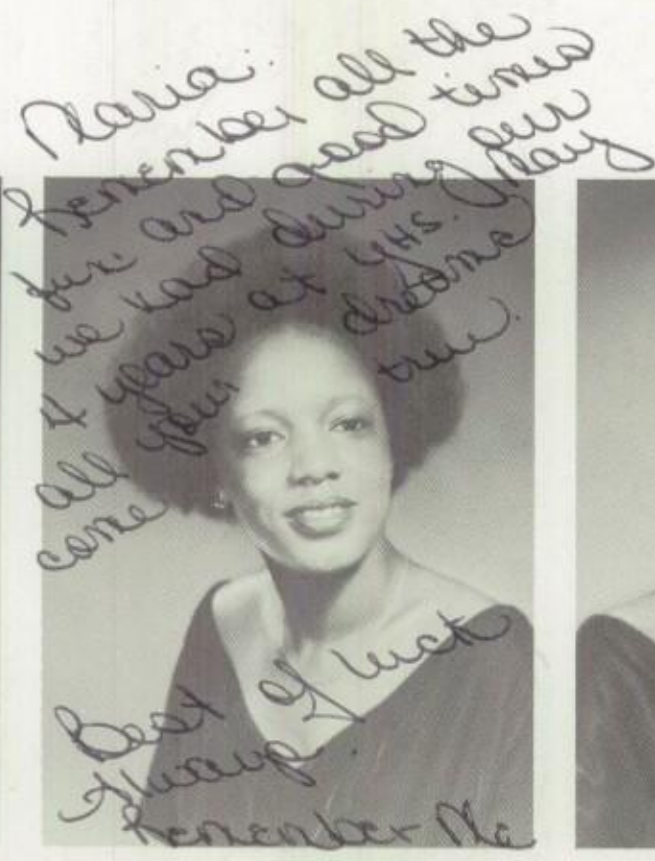 Maria:
Remember all the
fun and good times
we had during our
4 years at YHS. May
all your dreams
come true.
Best of luck
Always.
Remember Me